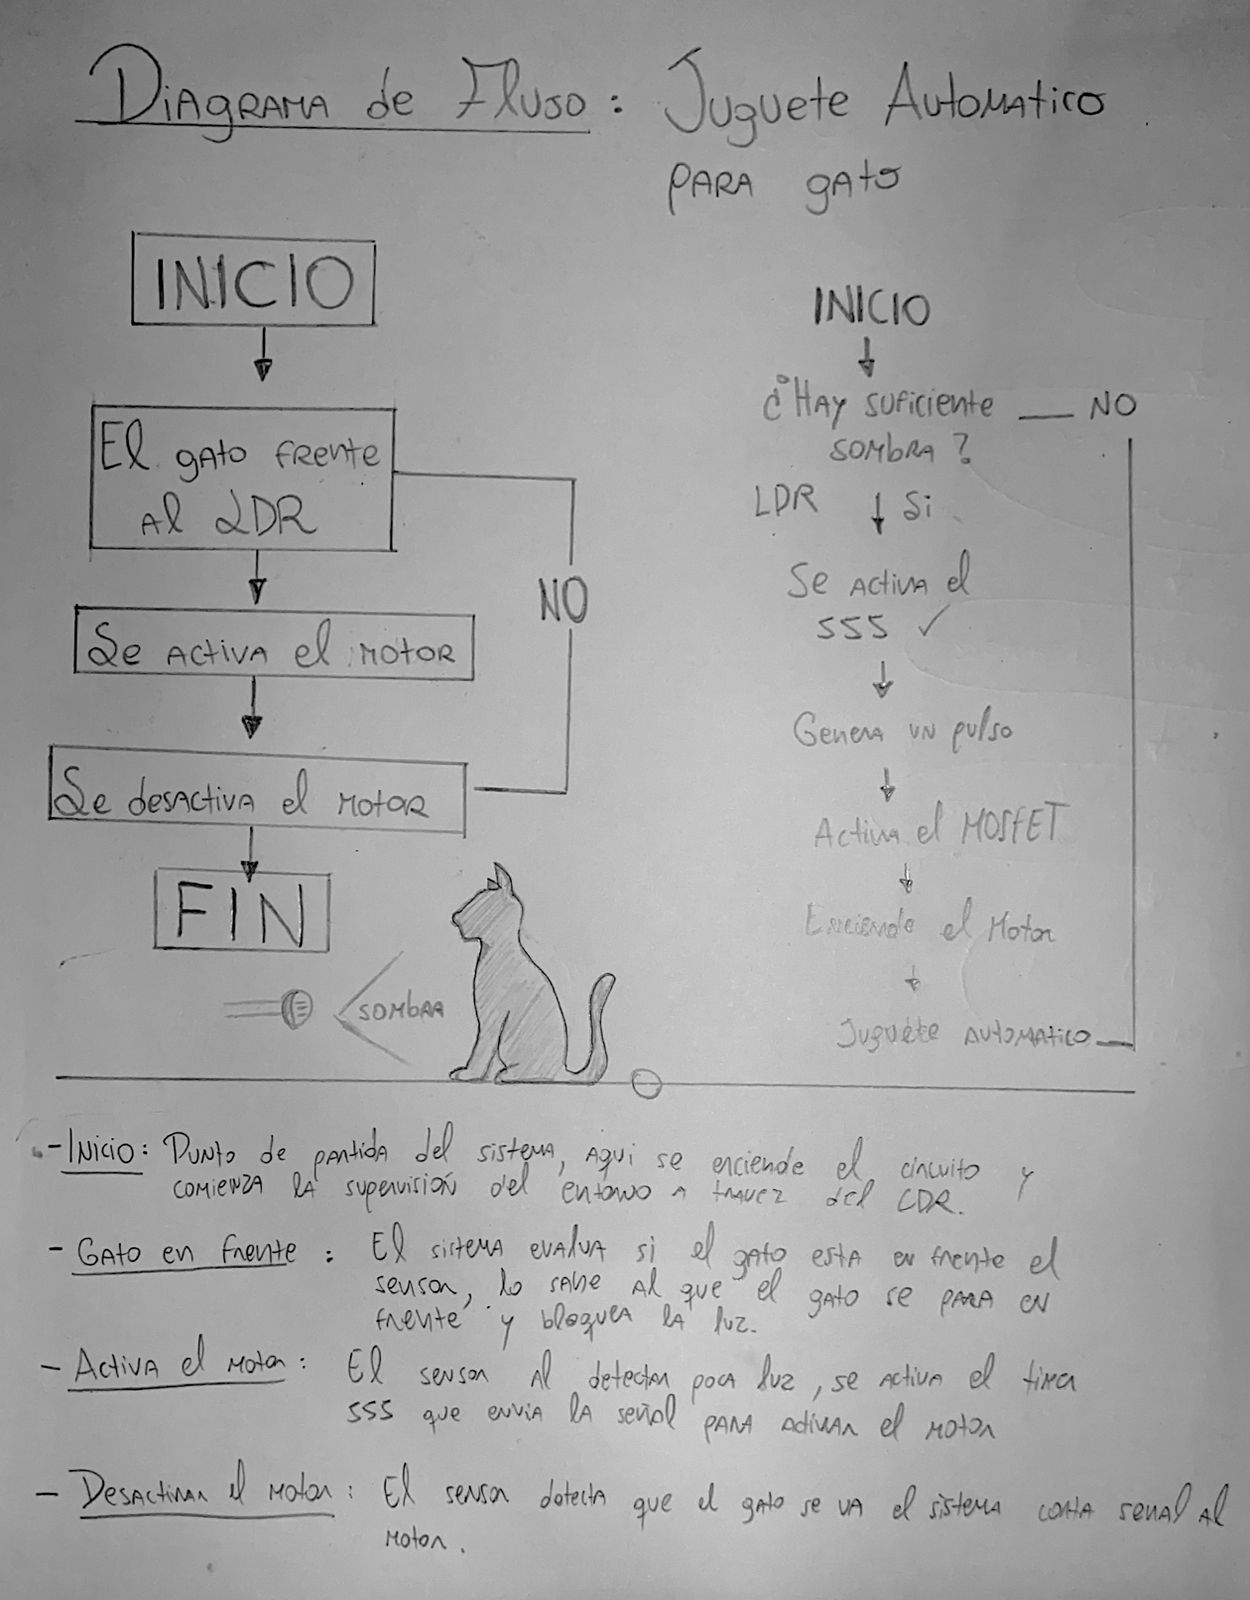 Diagrama de Fluso: Juguete Automatico
para gato
INICIO
El gato frente
al LDR
NO
Se activa el motor
Se desactiva el motor
FIN
sombra
INICIO
¿Hay suficiente — NO
sombra?
LDR Si
Se activa el
555 ✓
Genera un pulso
Activa el MOSFET
Enciende el Motor
Juguete automatico
- Inicio: Punto de partida del sistema, aqui se enciende el circuito y
comienza la supervisión del entorno a travez del LDR.
- Gato en frente: El sistema evalua si el gato esta en frente el
sensor, lo sabe al que el gato se para en
frente y bloquea la luz.
- Activa el motor: El sensor al detectar poca luz, se activa el timer
555 que envia la señal para activar el motor
- Desactivar el motor: El sensor detecta que el gato se va el sistema corta senal al
motor.